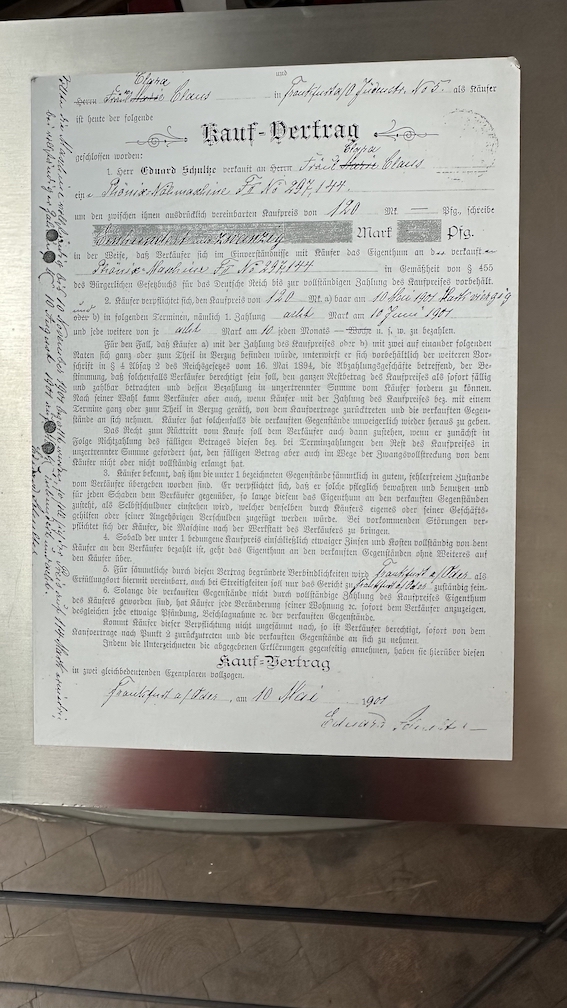 und
Clara
Herrn Fräul. Marie Claus in Frankfurt a/O Jüdenstr. No 5. als Käufer
ist heute der folgende
Kauf-Vertrag
geschlossen worden:
Clara
1. Herr Eduard Schultze verkauft an Herrn Fräul. Marie Claus
eine Phönix-Nähmaschine No 297,144.
um den zwischen ihnen ausdrücklich vereinbarten Kaufpreis von 120 Mk — Pfg. schreibe
Einhundert und zwanzig Mark Pfg.
in der Weise, daß Verkäufer sich im Einverständniße mit Käufer das Eigenthum an der verkauften
Phönix-Maschine No 297,144 in Gemäßheit von § 455
des Bürgerlichen Gesetzbuchs für das Deutsche Reich bis zur vollständigen Zahlung des Kaufpreises vorbehält.
2. Käufer verpflichtet sich, den Kaufpreis von 120 Mk. a) baar am 10 Mai 1901 Mark vierzig
und
oder b) in folgenden Terminen, nämlich 1. Zahlung acht Mark am 10 Juni 1901
und jede weitere von je acht Mark am 10 jeden Monats — Woche u. s. w. zu bezahlen.
Für den Fall, daß Käufer a) mit der Zahlung des Kaufpreises oder b) mit zwei auf einander folgenden
Raten sich ganz oder zum Theil in Verzug befinden würde, unterwirft er sich vorbehältlich der weiteren Vor-
schrift in § 4 Absatz 2 des Reichsgesetzes vom 16. Mai 1894, die Abzahlungsgeschäfte betreffend, der Be-
stimmung, daß solchenfalls Verkäufer berechtigt sein soll, den ganzen Restbetrag des Kaufpreises als sofort fällig
und zahlbar zu betrachten und dessen Bezahlung in unzertrennter Summe vom Käufer fordern zu können.
Nach seiner Wahl kann Verkäufer aber auch, wenn Käufer mit der Zahlung des Kaufpreises bez. mit einem
Termine ganz oder zum Theil in Verzug geräth, von dem Kaufvertrage zurücktreten und die verkauften Gegen-
stände an sich nehmen. Käufer hat solchenfalls die verkauften Gegenstände unweigerlich wieder heraus zu geben.
Das Recht zum Rücktritt vom Kaufe soll dem Verkäufer auch dann zustehen, wenn er zunächst in
Folge Nichtzahlung des fälligen Betrages diesen bez. bei Terminzahlungen den Rest des Kaufpreises in
unzertrennter Summe gefordert hat, den fälligen Betrag aber auch im Wege der Zwangsvollstreckung von dem
Käufer nicht oder nicht vollständig erlangt hat.
3. Käufer bekennt, daß ihm die unter 1 bezeichneten Gegenstände sämmtlich in gutem, fehlerfreiem Zustande
vom Verkäufer übergeben worden sind. Er verpflichtet sich, daß er solche pfleglich bewahren und benutzen und
für jeden Schaden dem Verkäufer gegenüber, so lange diesem das Eigenthum an den verkauften Gegenständen
zusteht, als Selbstschuldner einstehen will, welcher denselben durch Käufers eigenes oder seiner Geschäfts-
gehilfen oder seiner Angehörigen Verschulden zugefügt werden würde. Bei vorkommenden Störungen ver-
pflichtet sich der Käufer, die Maschine nach der Werkstatt des Verkäufers zu bringen.
4. Sobald der unter 1 bedungene Kaufpreis einschließlich etwaiger Zinsen und Kosten vollständig von dem
Käufer an den Verkäufer bezahlt ist, geht das Eigenthum an den verkauften Gegenständen ohne Weiteres auf
den Käufer über.
5. Für sämmtliche durch diesen Vertrag begründete Verbindlichkeiten wird Frankfurt a/Oder als
Erfüllungsort hiermit vereinbart, auch bei Streitigkeiten soll nur das Gericht zu Frankfurt a/Oder zuständig sein.
6. Solange die verkauften Gegenstände nicht durch vollständige Zahlung des Kaufpreises Eigenthum
des Käufers geworden sind, hat Käufer jede Veränderung seiner Wohnung ꝛc. sofort dem Verkäufer anzuzeigen,
desgleichen jede etwaige Pfändung, Beschlagnahme ꝛc. der verkauften Gegenstände.
Kommt Käufer dieser Verpflichtung nicht ungesäumt nach, so ist Verkäufer berechtigt, sofort von dem
Kaufvertrage nach Punkt 2 zurückzutreten und die verkauften Gegenstände an sich zu nehmen.
Indem die Unterzeichneten die abgegebenen Erklärungen gegenseitig annehmen, haben sie hierüber diesen
Kauf-Vertrag
in zwei gleichbedeutenden Exemplaren vollzogen.
Frankfurt a/Oder, am 10 Mai 1901
Eduard Schultze